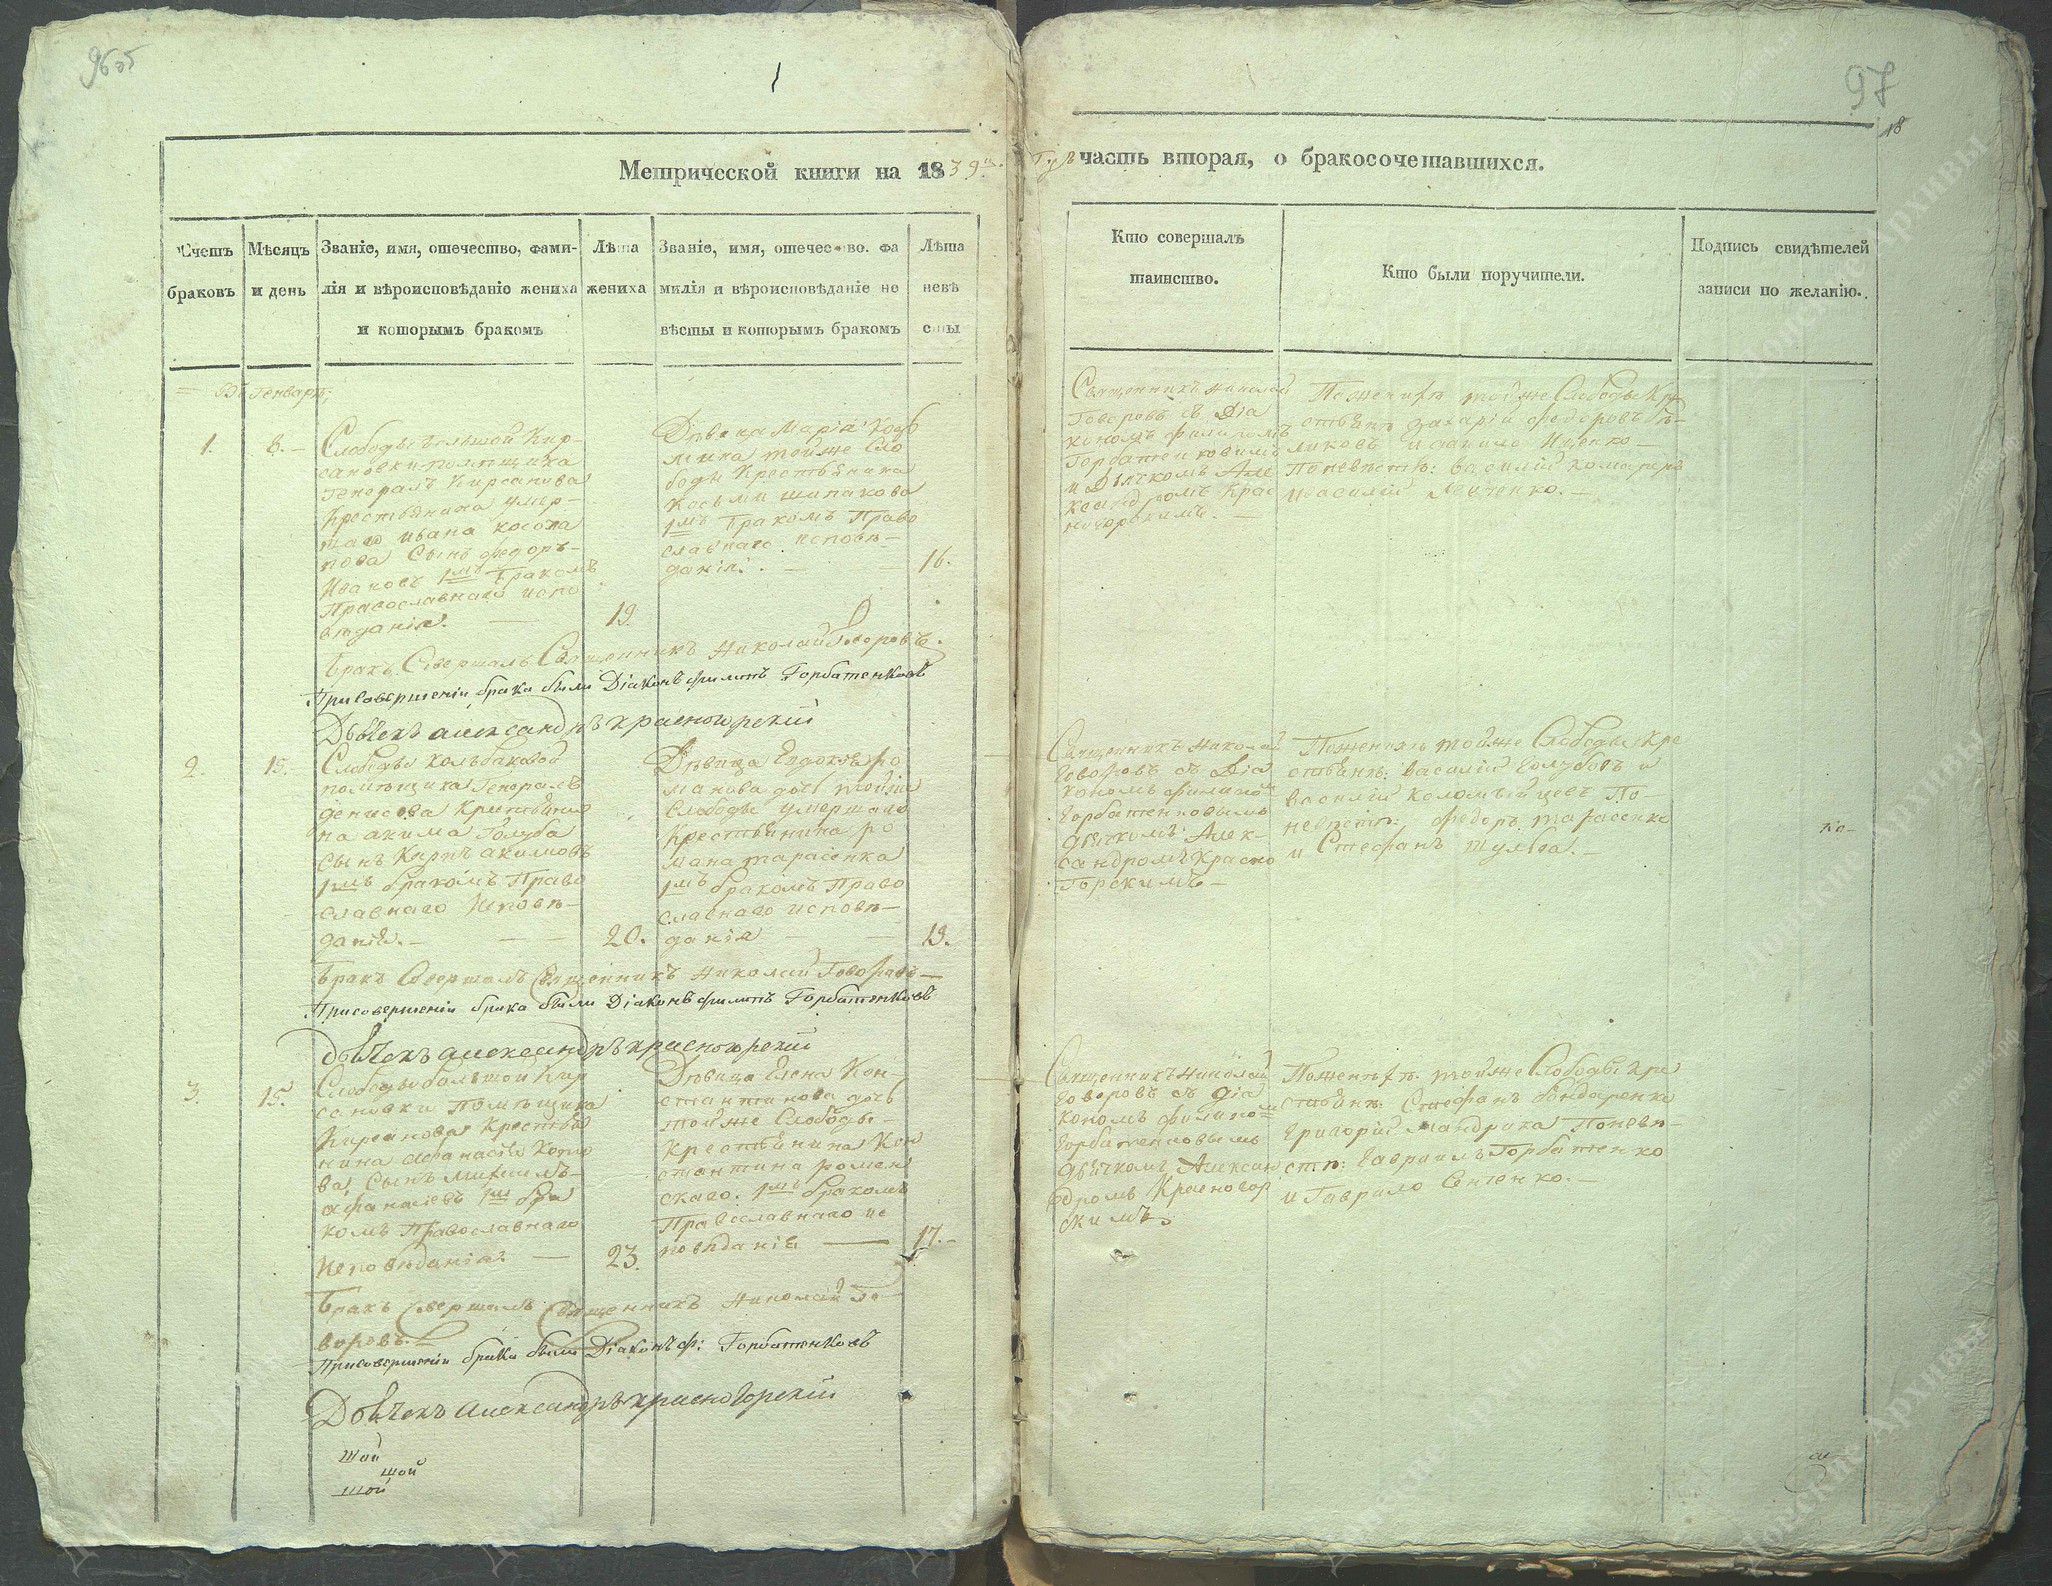 96 об
97
18
Метрической книги на 1839й.
годъ часть вторая, о бракосочетавшихся.
Счетъ браковъ
Мѣсяцъ и день
Званіе, имя, отечество, фами-
лія и вѣроисповѣданіе жениха
и которымъ бракомъ
Лѣта
жениха
Званіе, имя, отечество. фа
милія и вѣроисповѣданіе не
вѣсты и которымъ бракомъ
Лѣта
невѣ
сты
Кто совершалъ
таинство.
Кто были поручители.
Подпись свидѣтелей
записи по желанію.
Въ Генварѣ;
1.
8.
Слободы большой Кир-
сановки помѣщика
Генерала Кирсанова
Крестьянина умер-
шаго Ивана
сынъ Федоръ
Ивановъ 1мъ бракомъ
Православнаго испо
вѣданія.
19.
Дѣвица Марія
тойже Сло
боды Крестьянина
Косьми
1мъ бракомъ Право
славнаго исповѣ-
данія.
16.
Священникъ Николай
Говоровъ съ Діа
кономъ Филипомъ
Горбатенковимъ
и Дьячкомъ Але
ксандромъ Крас
ногорскимъ.
По женихѣ тойже Слободы Кре
стьяне Захарій Федоровъ
и
По невѣстѣ: Василій
и Василій
Бракъ Совершалъ Священникъ Николай Говоровъ.
При совершеніи брака были Діаконъ Филипъ Горбатенковъ
Дьячекъ Александръ Красногорскій
2.
15.
Слободы Колпаковой
помѣщика Генерала
Денисова Крестьяни
на Акима Голуба
сынъ Карпъ Акимовъ
1мъ бракомъ Право
славнаго Исповѣ-
данія.
20.
Дѣвица Евдокія Ро
манова дочь тойже
Слободы умершаго
Крестьянина Ро
мана Тарасенка
1мъ бракомъ Право
славнаго исповѣ-
данія
19.
Священникъ Николай
Говоровъ съ Діа
кономъ Филипомъ
Горбатенковымъ
Дьячкомъ Алек-
сандромъ Красно
Горскимъ
По женихѣ тойже Слободы Кре
стьяне: Василій Голубовъ и
Василій Коломѣйцевъ По
невѣстѣ: Федоръ Тарасенко
и Стефанъ
Ко-
Бракъ Совершалъ Священникъ Николай Говоровъ
При совершеніи брака были Діаконъ Филипъ Горбатенковъ
Дьячекъ Александръ Красногорскій
3.
15.
Слободы большой Кир
сановки Помѣщика
Кирсанова Крестья
нина Афанасія
сынъ Михаилъ
Афанасіевъ 1мъ бра
комъ Православнаго
Исповѣданія.
23.
Дѣвица Елена Кон-
стантинова дочь
тойже Слободы
Крестьянина Кон
стантина Ромен
скаго. 1мъ бракомъ
Православнаго ис
повѣданія
17.
Священникъ Николай
Говоровъ съ Діа
кономъ Филипомъ
Горбатенковымъ
Дьячкомъ Алексан
дромъ Красногор
скимъ.
По женихѣ: тойже Слободы Кре
стьяне: Стефанъ Бондаренко
Григорій Мандрика По невѣ-
стѣ: Гавріилъ Горбатенко
и Гаврило
Бракъ Совершалъ Священникъ Николай Го-
воровъ.
При совершеніи брака были Діаконъ Ф: Горбатенковъ
Дьячекъ Александръ Красногорскій
шой
шой
шой
Донские Архивы